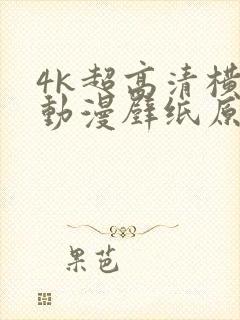 4k超高清横
動漫壁纸原
果芭